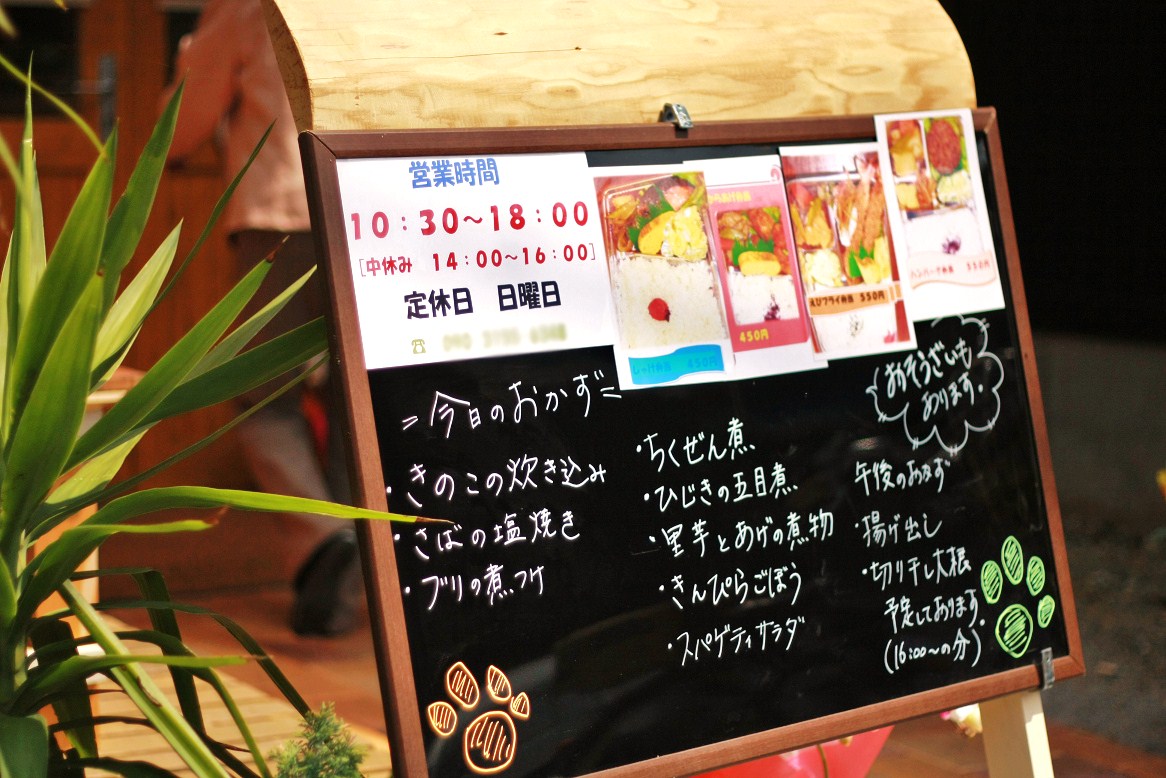 営業時間
10：30～18：00
[中休み 14：00～16：00]
定休日 日曜日
しゃけ弁当 450円
からあげ弁当
450円
えびフライ弁当 550円
ハンバーグ弁当 550円
=今日のおかず=
・きのこの炊き込み
・さばの塩焼き
・ブリの煮つけ
・ちくぜん煮
・ひじきの五目煮
・里芋とあげの煮物
・きんぴらごぼう
・スパゲティサラダ
おそうざいも
あります.
午後のおかず
・揚げ出し
・切り干し大根
予定してあります.
(16:00〜の分)